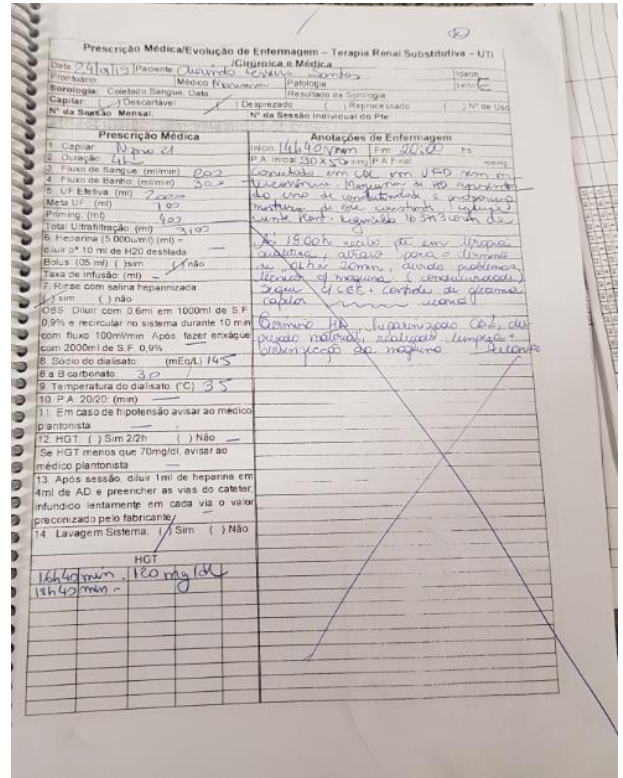 Prescrição Médica/Evolução de Enfermagem – Terapia Renal Substitutiva – UTI
/Cirúrgica e Médica
Data 24/ /19 Paciente Santos Idade
Prontuário Médico Patologia Leito E
Sorologia: Coletado Sangue, Data Resultado da Sorologia
Capilar: ( ) Descartável ( ) Desprezado ( ) Reprocessado ( ) Nº de Uso
Nº da Sessão Mensal: Nº da Sessão Individual do Pte
Prescrição Médica
1. Capilar: N pro 21
2. Duração: 4h
3. Fluxo de Sangue: (ml/min) 200
4. Fluxo de Banho: (ml/min) 300
5. UF Efetiva: (ml) 2000
Meta UF: (ml) 700
Priming: (ml) 400
Total Ultrafiltração: (ml) 3100
6. Heparina (5.000u/ml) (ml) –
diluir p° 10 ml de H20 destilada
Bolus (05 ml): ( )sim (/)não
Taxa de infusão: (ml) —
7. Rinse com salina heparinizada
(/) sim ( ) não
OBS: Diluir com 0.6ml em 1000ml de S.F
0,9% e recircular no sistema durante 10 min
com fluxo 100ml/min. Após, fazer enxágue
com 2000ml de S.F. 0,9%
8. Sódio do dialisato: (mEq/L) 145
8.a Bicarbonato: 30
9. Temperatura do dialisato: (°C) 35
10. P.A. 20/20: (min) —
11. Em caso de hipotensão avisar ao médico
plantonista —
12. HGT: ( ) Sim 2/2h ( ) Não —
Se HGT menos que 70mg/dl, avisar ao
médico plantonista —
13. Após sessão, diluir 1ml de heparina em
4ml de AD e preencher as vias do cateter,
infundido lentamente em cada via o valor
preconizado pelo fabricante
14. Lavagem Sistema: (/) Sim ( ) Não
HGT
16h40 min. 120 mg/dl
18h40 min -
Anotações de Enfermagem
Início: 14h40 min Fim: 20:00 hs
P.A. Inicial 90x50 mmHg P.A. Final mmHg
Conectado em CDL em VFD sem
Maquina de HD
do erro de condutividade e
mistura de constante
Reginaldo
Às 18:00h recebo pte em terapia
dialítica, atraso para o término
de 01hr e 20min, devido problemas
técnicos c/ maquina. (condutividade)
Segue 4CEE + controle de glicemia
capilar
Termino HD, heparinizado CDL, des
prezado material, realizado limpeza e
desinfecção da maquina.